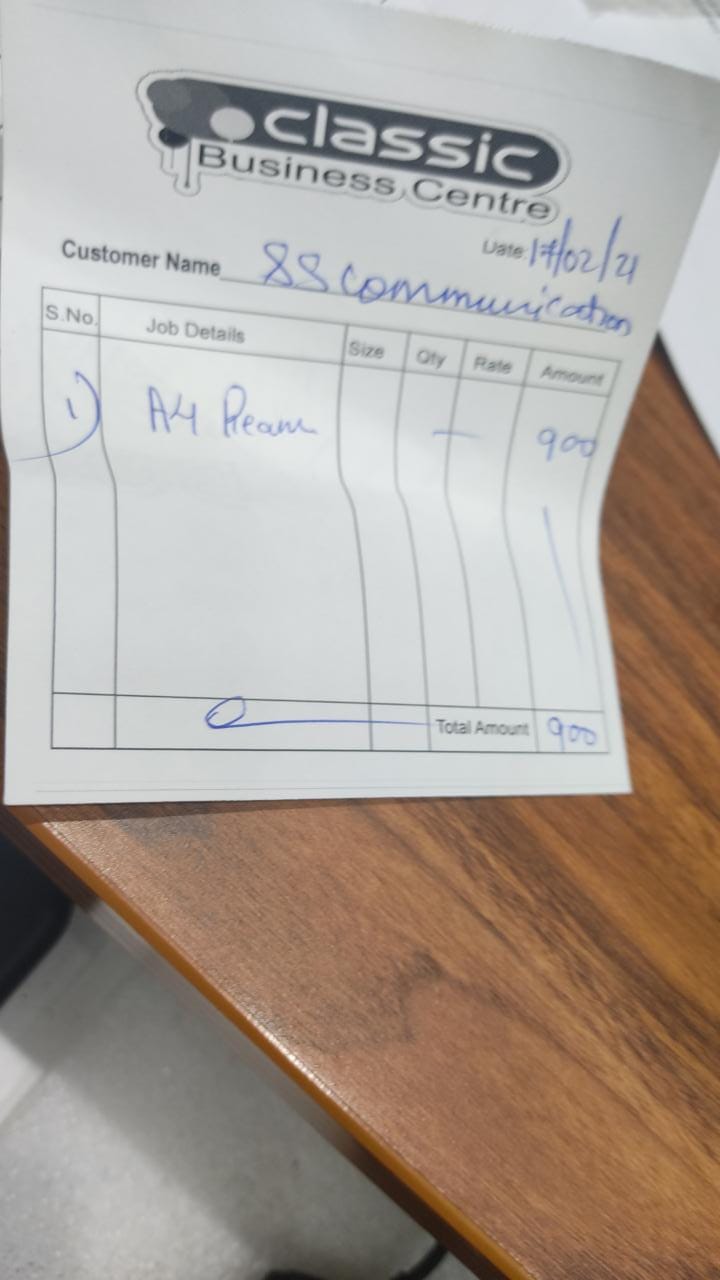 classic
Business Centre
Date: 17/02/21
Customer Name SS Communication
S.No. Job Details Size Qty Rate Amount
1) A4 Ream — 900
Total Amount 900